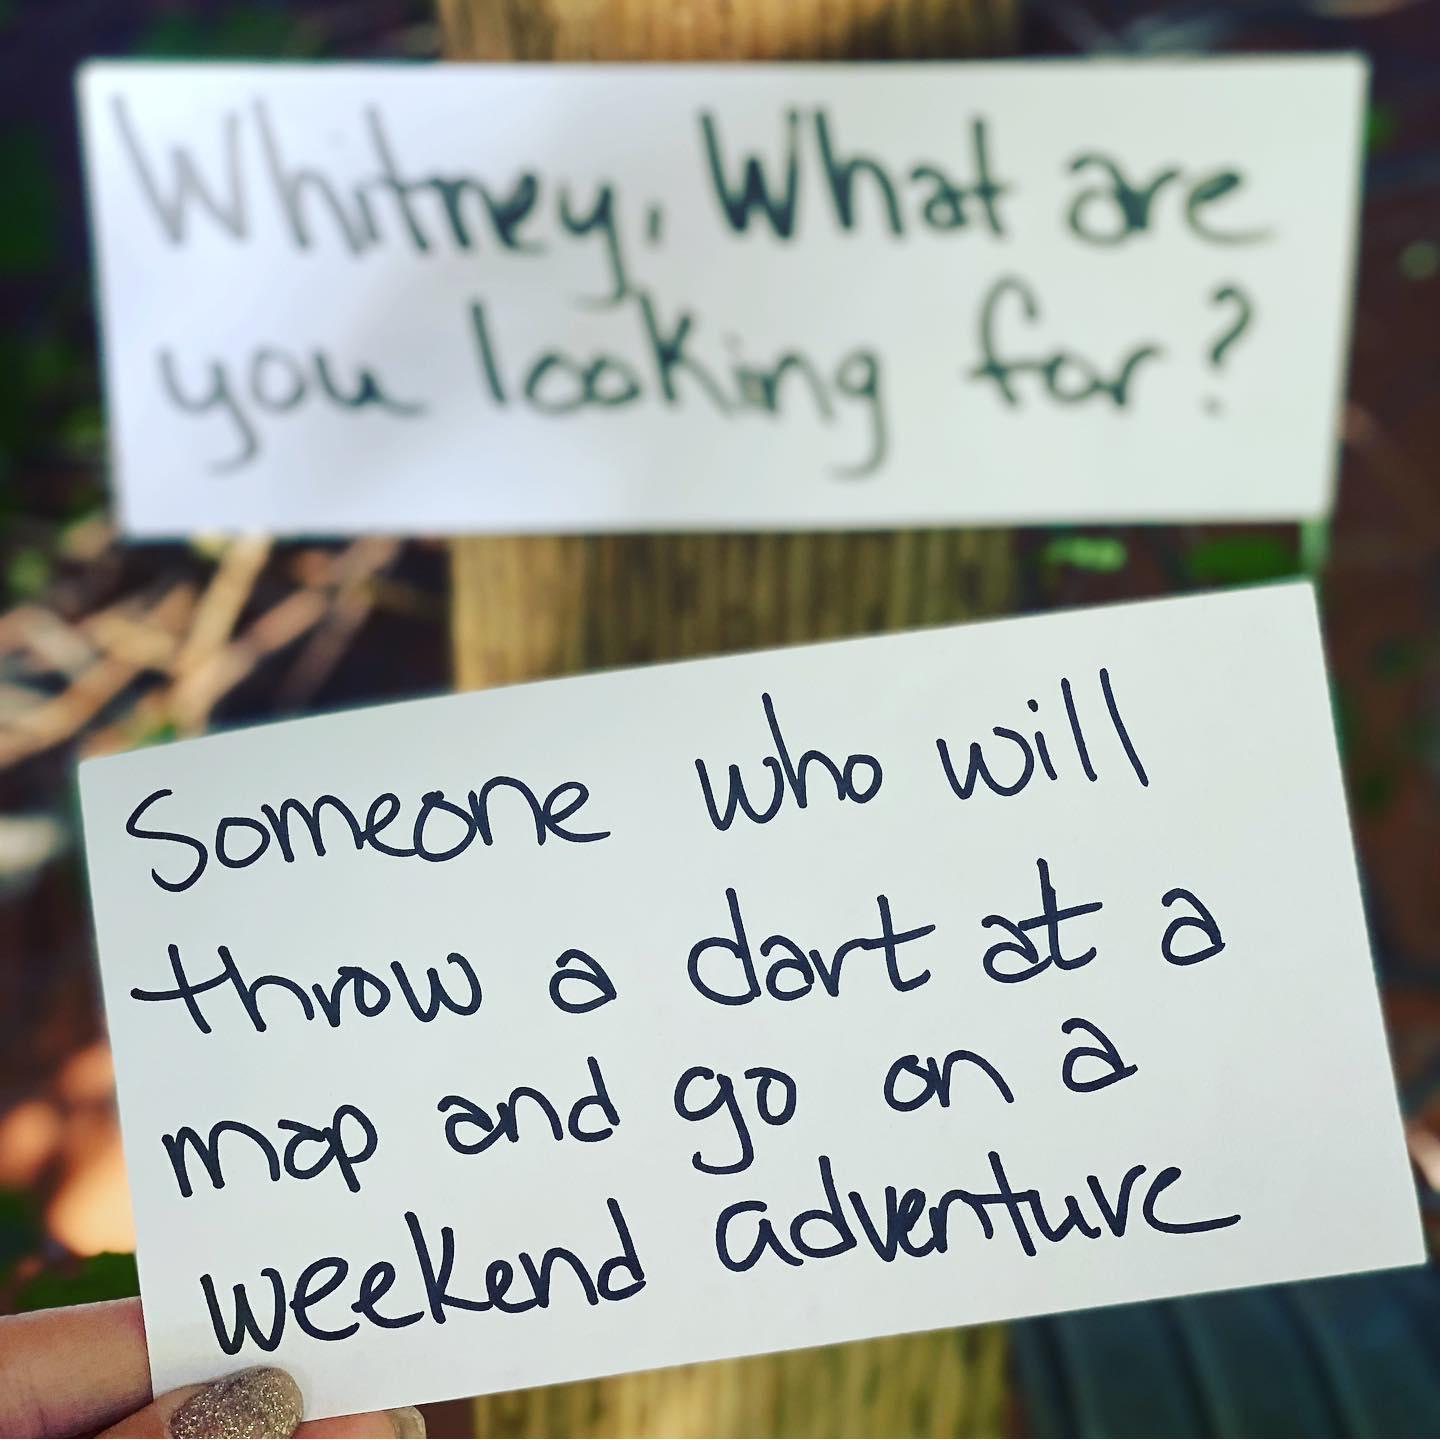 Whitney, What are
you looking for?
Someone who will
throw a dart at a
map and go on a
weekend adventure